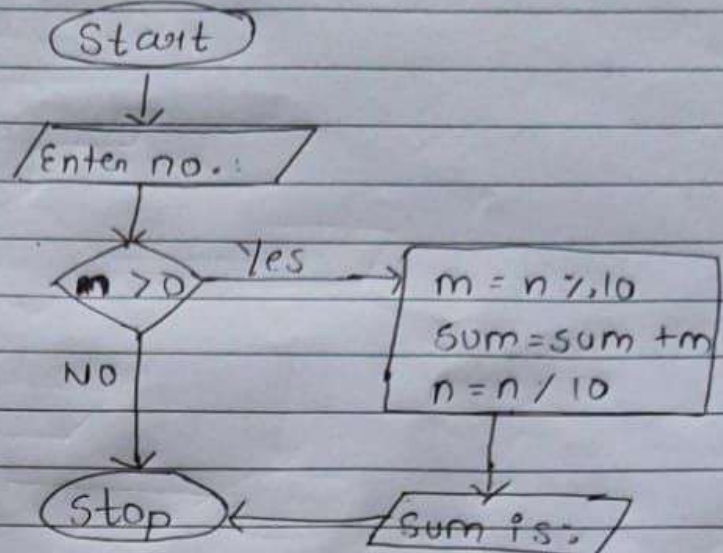 Start
Enter no.:
m > 0
Yes
m = n % 10
sum = sum + m
n = n / 10
NO
Stop
sum is: